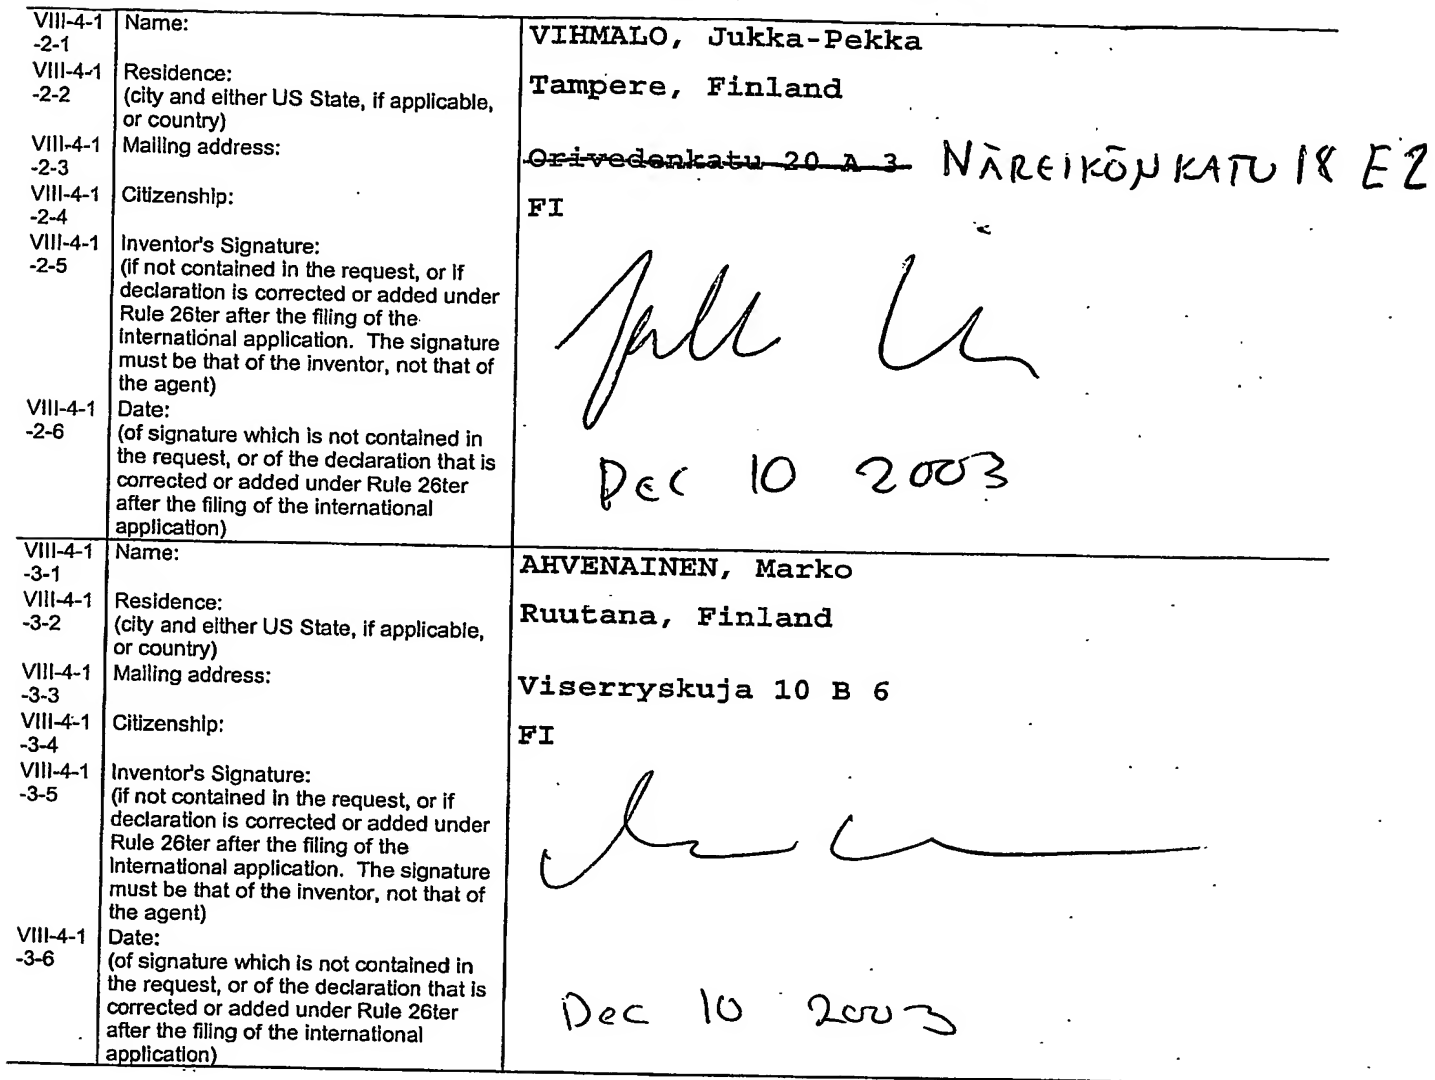 VIII-4-1 Name: VIHMALO, Jukka-Pekka
-2-1
VIII-4-1 Residence: Tampere, Finland
-2-2 (city and either US State, if applicable,
or country)
VIII-4-1 Mailing address: Orivedenkatu 20 A 3 NÄREIKÖNKATU 18 E2
-2-3
VIII-4-1 Citizenship: FI
-2-4
VIII-4-1 Inventor's Signature:
-2-5 (if not contained in the request, or if
declaration is corrected or added under
Rule 26ter after the filing of the
international application. The signature
must be that of the inventor, not that of
the agent)
VIII-4-1 Date:
-2-6 (of signature which is not contained in
the request, or of the declaration that is
corrected or added under Rule 26ter
after the filing of the international
application)
Dec 10 2003
VIII-4-1 Name: AHVENAINEN, Marko
-3-1
VIII-4-1 Residence: Ruutana, Finland
-3-2 (city and either US State, if applicable,
or country)
VIII-4-1 Mailing address: Viserryskuja 10 B 6
-3-3
VIII-4-1 Citizenship: FI
-3-4
VIII-4-1 Inventor's Signature:
-3-5 (if not contained in the request, or if
declaration is corrected or added under
Rule 26ter after the filing of the
International application. The signature
must be that of the inventor, not that of
the agent)
VIII-4-1 Date:
-3-6 (of signature which is not contained in
the request, or of the declaration that is
corrected or added under Rule 26ter
after the filing of the international
application)
Dec 10 2003